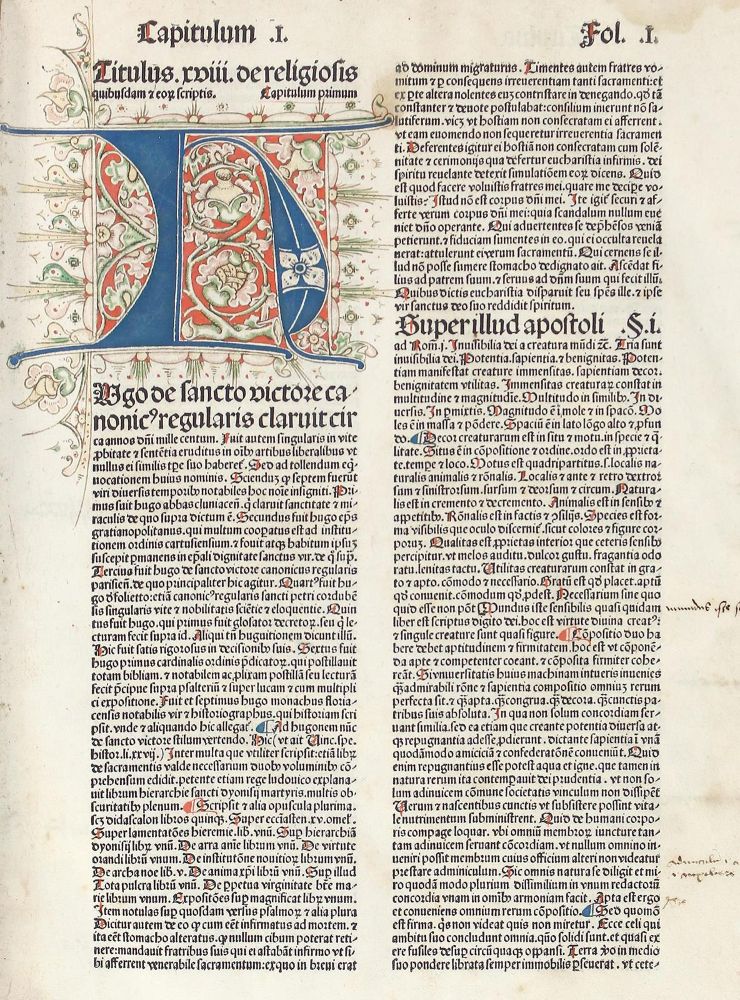 Capitulum .I.
Fol. .I.
Titulus .xviii. de religiosis
quibusdam & eorum scriptis. Capitulum primum
HUgo de sancto victore ca-
nonicꝰ regularis claruit cir
ca annos dñi mille centum. Fuit autem singularis in vite
ꝓbitate & sentẽtia eruditus in oĩbꝰ artibus liberalibus vt
nullus ei similis tꝑe suo haberet̃. Sed ad tollendum eq̃
uocationem huius nominis. Sciendum ꝙ septem fuerũt
viri diuersis temporibꝰ notabiles hoc noĩe insigniti. Pri
mus fuit hugo abbas cluniaceñ. q̃ claruit sanctitate & mi
raculis de quo supra dictum ẽ. Secundus fuit hugo ep̃s
gratianopolitanus. qui multum cooꝑatus est ad institu
tionem ordinis cartusiensium. & fuit atqꝫ habitum ipsuꝫ
suscepit ꝑmanens in ep̃ali dignitate sanctus vir. de q̃ suꝑ.
Tercius fuit hugo de sancto victore canonicus regularis
parisieñ. de quo principaliter hic agitur. Quartꝰ fuit hu-
go ď folieto: etiã canonicꝰ regularis sancti petri cordubẽ
sis singularis vite & nobilitatis sciẽtie & eloquentie. Quin
tus fuit hugo. qui primus fuit glosator decretorꝫ. seu q̃ le-
cturam fecit supra id. Aliqui tñ huguitionem dicunt illũ.
Hic fuit satis rigorosus in decisionibꝰ suis. Sextus fuit
hugo primus cardinalis ordinis p̃dicatorꝫ. qui postillauit
totam bibliam. & notabilem ac plixam postillã seu lecturã
fecit p̃cipue supra psalteriũ & super lucam & cum multipli
ci expositione. Fuit et septimus hugo monachus floria-
censis notabilis vir & historiographus. qui historiam scri
psit. vnde & aliquando hic allegat̃. Ad hugonem nũc
de sancto victore stilum vertendo. Hic (vt ait Vinc. spe.
histor. li. xxvij.) Inter multa que vtiliter scripsit: etiã librꝫ
de sacramentis valde necessarum duobꝰ voluminibꝰ cõ-
prehensum edidit. petente etiam rege ludouico explana-
uit librum hierarchie sancti dyonisij martyris. multis ob-
scuritatibꝰ plenum. Scripsit & alia opuscula plurima.
scꝫ didascalon libros quinqꝫ. Super ecciasten. xv. omel'.
Super lamentatões hieremie. lib. vnũ. Suꝑ hierarchiã
dyonisij librꝫ vnũ. De arra aĩe librum vnũ. De virtute
orandi librũ vnum. De institutõne nouitiorꝫ librum vnũ.
De archa noe lib. v. De anima xp̃i librũ vnũ. Suꝑ illud
Tota pulcra librũ vnũ. De ꝑpetua virginitate btẽ ma-
rie librum vnum. Expositões suꝑ magnificat librꝫ vnum.
Item notulas suꝑ quosdam versus psalmorꝫ & alia plura
Dicitur autem de eo ꝙ cum eẽt infirmatus ad mortem. &
ita eẽt stomacho alteratus. ꝙ nullum cibum poterat reti-
nere: mandauit fratribus suis qui ei astabãt infirmo vt si-
bi afferrent venerabile sacramentum: ex quo in breui erat
ad dominum migraturus. Timentes autem fratres vo-
mitum & ꝑ consequens irreuerentiam tanti sacramenti: et
ex ꝑte altera nolentes euꝫ contristare in denegando. qd̃ tã
constanter & deuote postulabat: consilium inierunt nõ sa-
lutiferum. vicꝫ vt hostiam non consecratam ei afferrent.
vt eam euomendo non sequeretur irreuerentia sacramen
ti. Deferentes igitur ei hostiã non consecratam cum solẽ-
nitate & cerimonijs qua defertur eucharistia infirmis. dei
spiritu reuelante detexit simulatiõem eorꝫ dicens. Quid
est quod facere voluistis fratres mei. quare me deciꝑe vo-
luistis? Istud nõ est corpus dñi mei. Ite igit̃ securi & af-
ferte verum corpus dñi mei: quia scandalum nullum eue
niet dño operante. Qui aduertentes se deprehẽsos veniã
petierunt. & fiduciam sumentes in eo. qui ei occulta reuela
uerat: attulerunt ei verum sacramentũ. Qui cernens se il-
lud nõ posse sumere stomacho dedignato ait. Ascẽdat fi-
lius ad patrem suum. & seruus ad dñm suum qui fecit illũ.
Quibus dictis eucharistia disparuit seu spẽs ille. & ipse
vir sanctus deo suo reddidit spiritum.
Super illud apostoli .§. i.
ad Rom. j. Inuisibilia dei a creatura mũdi ꝛc̃. Tria sunt
inuisibilia dei. Potentia. sapientia. & benignitas. Poten-
tiam manifestat creature immensitas. sapientiam decor:
benignitatem vtilitas. Immensitas creaturaꝫ constat in
multitudine & magnitudiẽ. Multitudo in similibꝰ. In di-
uersis. In ꝑmixtis. Magnitudo ẽ ĩ mole & in spacõ. Mo
les ẽ in massa & põdere. Spaciũ ẽ in lato lõgo alto & ꝓfun
do. Decor creaturarum est in situ & motu. in specie & q̃-
litate. Situs ẽ in cõpositione & ordine. ordo est in ꝓprieta-
te. tempe & loco. Motus est quadripartitus. s. localis na-
turalis animalis & rõnalis. Localis ẽ ante & retro dextror
sum & sinistrorsum. sursum & deorsum & circum. Natura-
lis est in cremento & decremento. Animalis est in sensibꝰ &
appetitibꝰ. Rõnalis est in factis & ɔsilijs. Species est for-
ma visibilis que oculo discernit̃. sicut colores & figure cor-
poruꝫ. Qualitas est ꝓprietas interior que ceteris sensibꝰ
percipitur. vt melos auditu. dulcor gustu. fragantia odo
ratu. lenitas tactu. Utilitas creaturarum constat in gra-
to & apto. cõmodo & necessario. Gratũ est qd̃ placet. aptũ
qd̃ conuenit. cõmodum qd̃ ꝓdest. Necessarium sine quo
quid esse non põt. Mundus iste sensibilis quasi quidam
liber est scriptus digito dei. hoc est virtute diuina creatꝰ:
& singule creature sunt quasi figure. Cõpositio duo ha
bere debet aptitudinem & firmitatem. hoc est vt cõponẽ-
da apte & competenter coeant. & cõposita firmiter cohe-
reãt. Si vniuersitatis huius machinam intueris inuenies
q̃ admirabili rõne & sapientia compositio omniuꝫ rerum
perfecta sit. & q̃ apta. q̃ congrua. q̃ decora. q̃ cunctis pa-
tribus suis absoluta. In qua non solum concordiam ser-
uant similia. sed ea etiam que creante potentia diuersa at-
qꝫ repugnantia ad esse. ꝓdierunt. dictante sapientia ĩ vnã
quodãmodo amicitiã & confederatõnẽ conueniũt. Quid
enim repugnantius esse potest aqua et igne. que tamen in
natura rerum ita contemperauit dei prudentia. vt non so-
lum adinuicem cõmune societatis vinculum non dissipẽt
Verum & nascentibus cunctis vt subsistere possint vita-
le nutrimentum subministrent. Quid de humani corpo-
ris compage loquar. vbi omniũ membrorꝫ iuncture tan-
tam adinuicem seruant cõcordiam. vt nullum omnino in-
ueniri possit membrum cuius officium alteri non videatur
prestare adminiculum. Sic omnis natura se diligit et mi-
ro quodã modo plurium dissimilium in vnum redactorũ
concordia vnam in oĩbꝰ armoniam facit. Apta est ergo
et conueniens omnium rerum cõpositio. Sed quomõ
est firma. q̃s non videat quis non miretur. Ecce celi qui
ambitu suo concludunt omnia. q̃uo solidi sunt. et quasi ex
ere fusiles desuꝑ circũquaqꝫ oppansi. Terra vo in medio
suo pondere librata semper immobilis ꝑseuerat. vt cete-
mundus iste